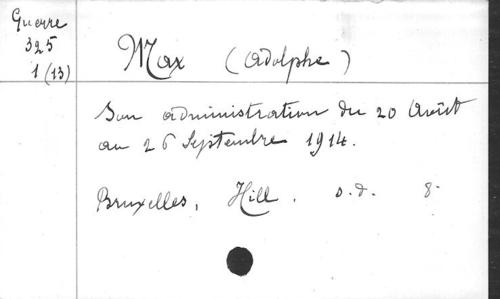 Guerre
325
1 (13)
Max (Adolphe)
Son administration du 20 Août
au 26 Septembre 1914.
Bruxelles, Hill. s.d. 8-